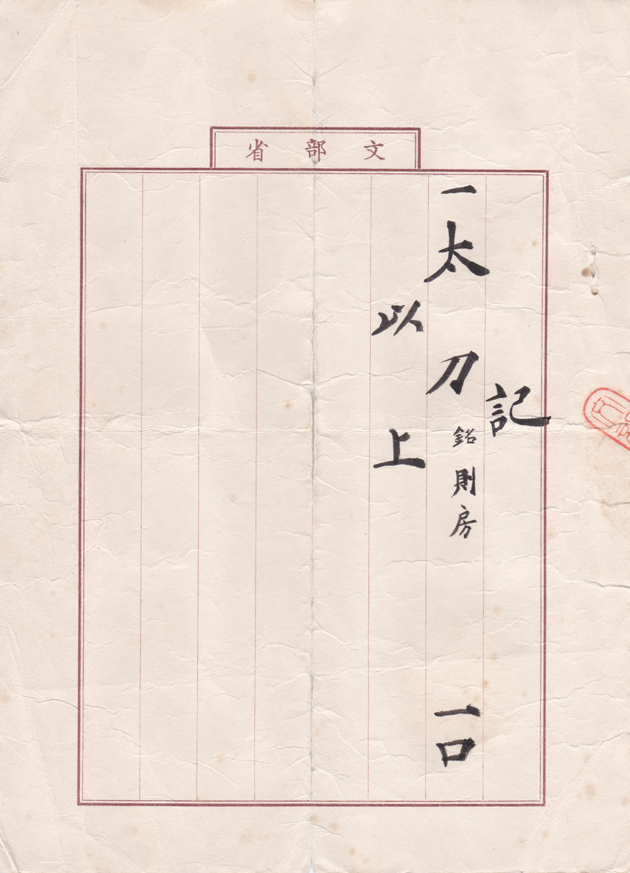 文部省
記
一太刀 銘則房 一口
以上